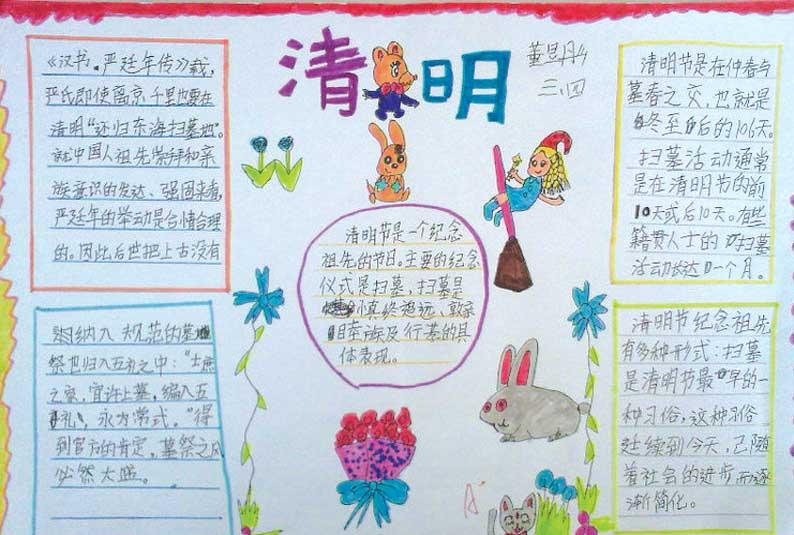 清明
董
三.四
《汉书.严廷年传》载,
严氏即使离京千里也要在
清明"还归东海扫墓地"。
就中国人祖先崇拜和亲
族意识的发达、强固来看,
严廷年的举动是合情合理
的。因此后世把上古没有
纳入规范的墓
祭也归入五礼之中:"士庶
之家,宜许上墓,编入五
礼,永为常式。"得
到官方的肯定,墓祭之风
必然大盛。
清明节是一个纪念
祖先的节日。主要的纪念
仪式是扫墓,扫墓是
慎终追远、敦亲
睦族及行基的具
体表现。
清明节是在仲春与
墓春之交,也就是
终至后的106天。
扫墓活动通常
是在清明节的前
10天或后10天。有些
籍贯人士的扫墓
活动长达一个月。
清明节纪念祖先
有多种形式:扫墓
是清明节最早的一
种习俗,这种习俗
延续到今天,已随
着社会的进步而逐
渐简化。
A